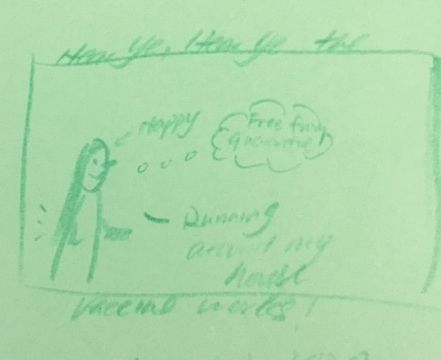 Hear Ye, Hear Ye the
Happy
Free from
Quarantine
Running
around my
house
Vaccine works!